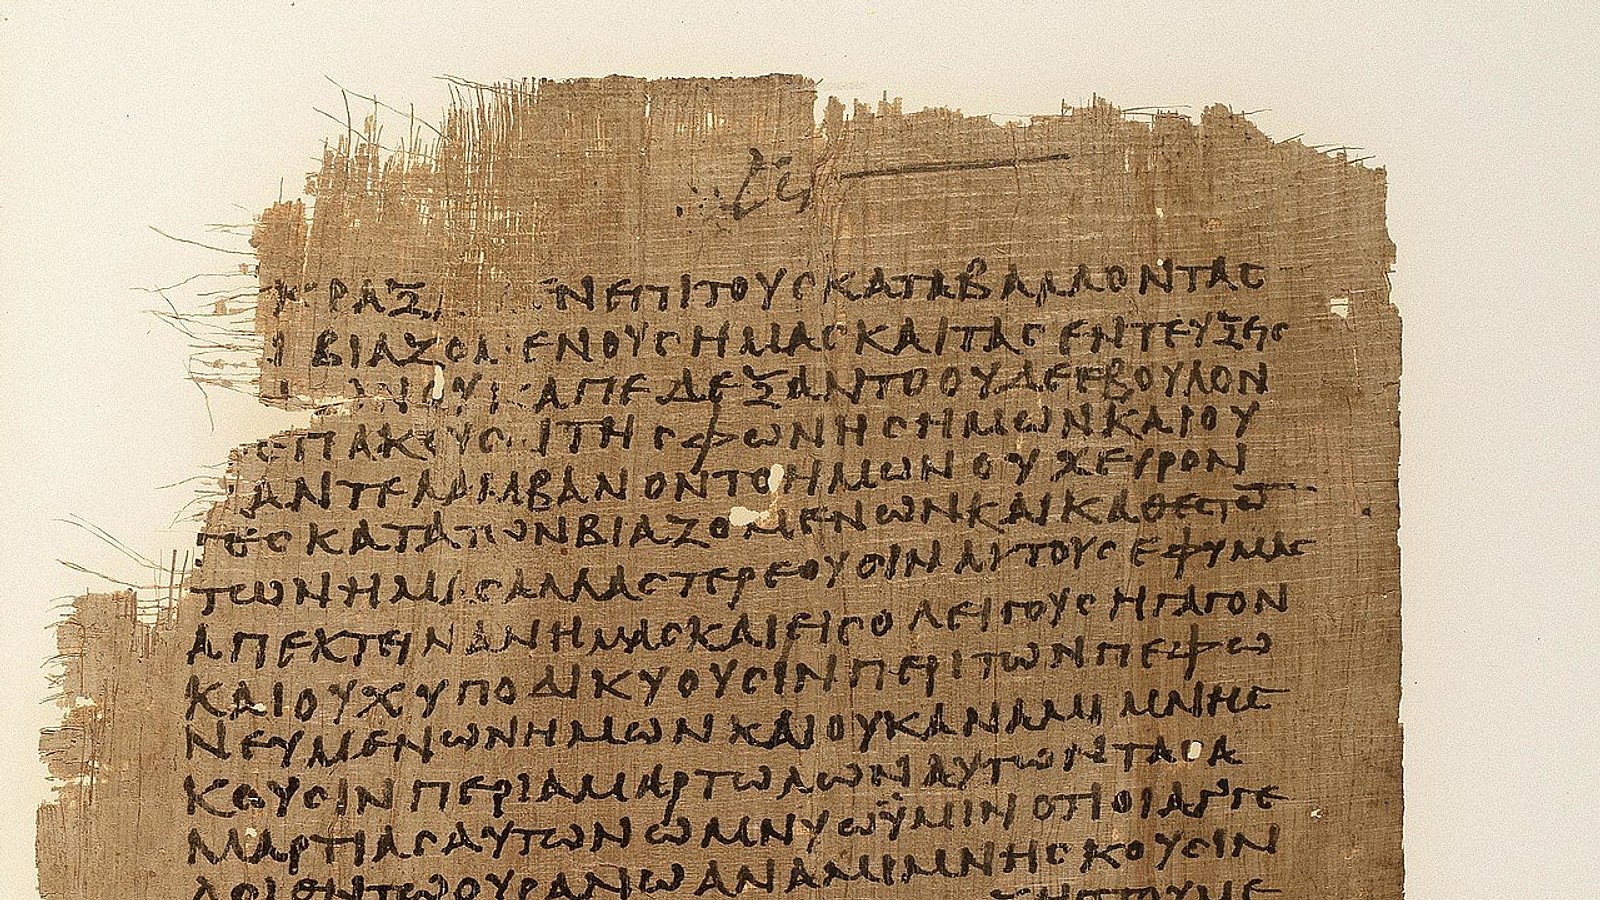 ΡΑΞ ΝΕΠΙΤΟΥϹΚΑΤΑΒΑΛΛΟΝΤΑϹ
Ι ΒΙΑΖΟΜΕΝΟΥϹΗΜΑϹΚΑΙΤΑϹΕΝΤΕΥΞΕΙϹ
ΟΥΚΑΠΕΔΕΞΑΝΤΟΟΥΔΕΕΒΟΥΛΟΝ
ΕΠΑΚΟΥϹ ΙΤΗϹΦΩΝΗϹΗΜΩΝΚΑΙΟΥ
ΑΝΤΕΛΑΜΒΑΝΟΝΤΟΗΜΩΝΟΥΧΕΥΡΟΝ
ΤΕϹΚΑΤΑΤΩΝΒΙΑΖΟΜΕΝΩΝΚΑΙΚΑΘΕϹΤΩ
ΤΩΝΗΜΑϹΑΛΛΑϹΤΕΡΕΟΥϹΙΝΑΥΤΟΥϹΕΦΥΜΑϹ
ΑΠΕΚΤΕΙΝΑΝΗΜΑϹΚΑΙΕΙϹΟΛΕΙΓΟΥϹΗΓΑΓΟΝ
ΚΑΙΟΥΧΥΠΟΔΙΚΥΟΥϹΙΝΠΕΡΙΤΩΝΠΕΦΩ
ΝΕΥΜΕΝΩΝΗΜΩΝΚΑΙΟΥΚΑΝΑΜΙΜΝΗϹ
ΚΟΥϹΙΝΠΕΡΙΑΜΑΡΤΩΛΩΝΑΥΤΩΝΤΑϹΑ
ΜΑΡΤΙΑϹΑΥΤΩΝΩΜΝΥΩΫΜΙΝΟΤΙΟΙΑΓΓΕ
ΛΟΙΕΝΤΩΟΥΡΑΝΩΑΝΑΜΙΜΝΗϹΚΟΥϹΙΝ